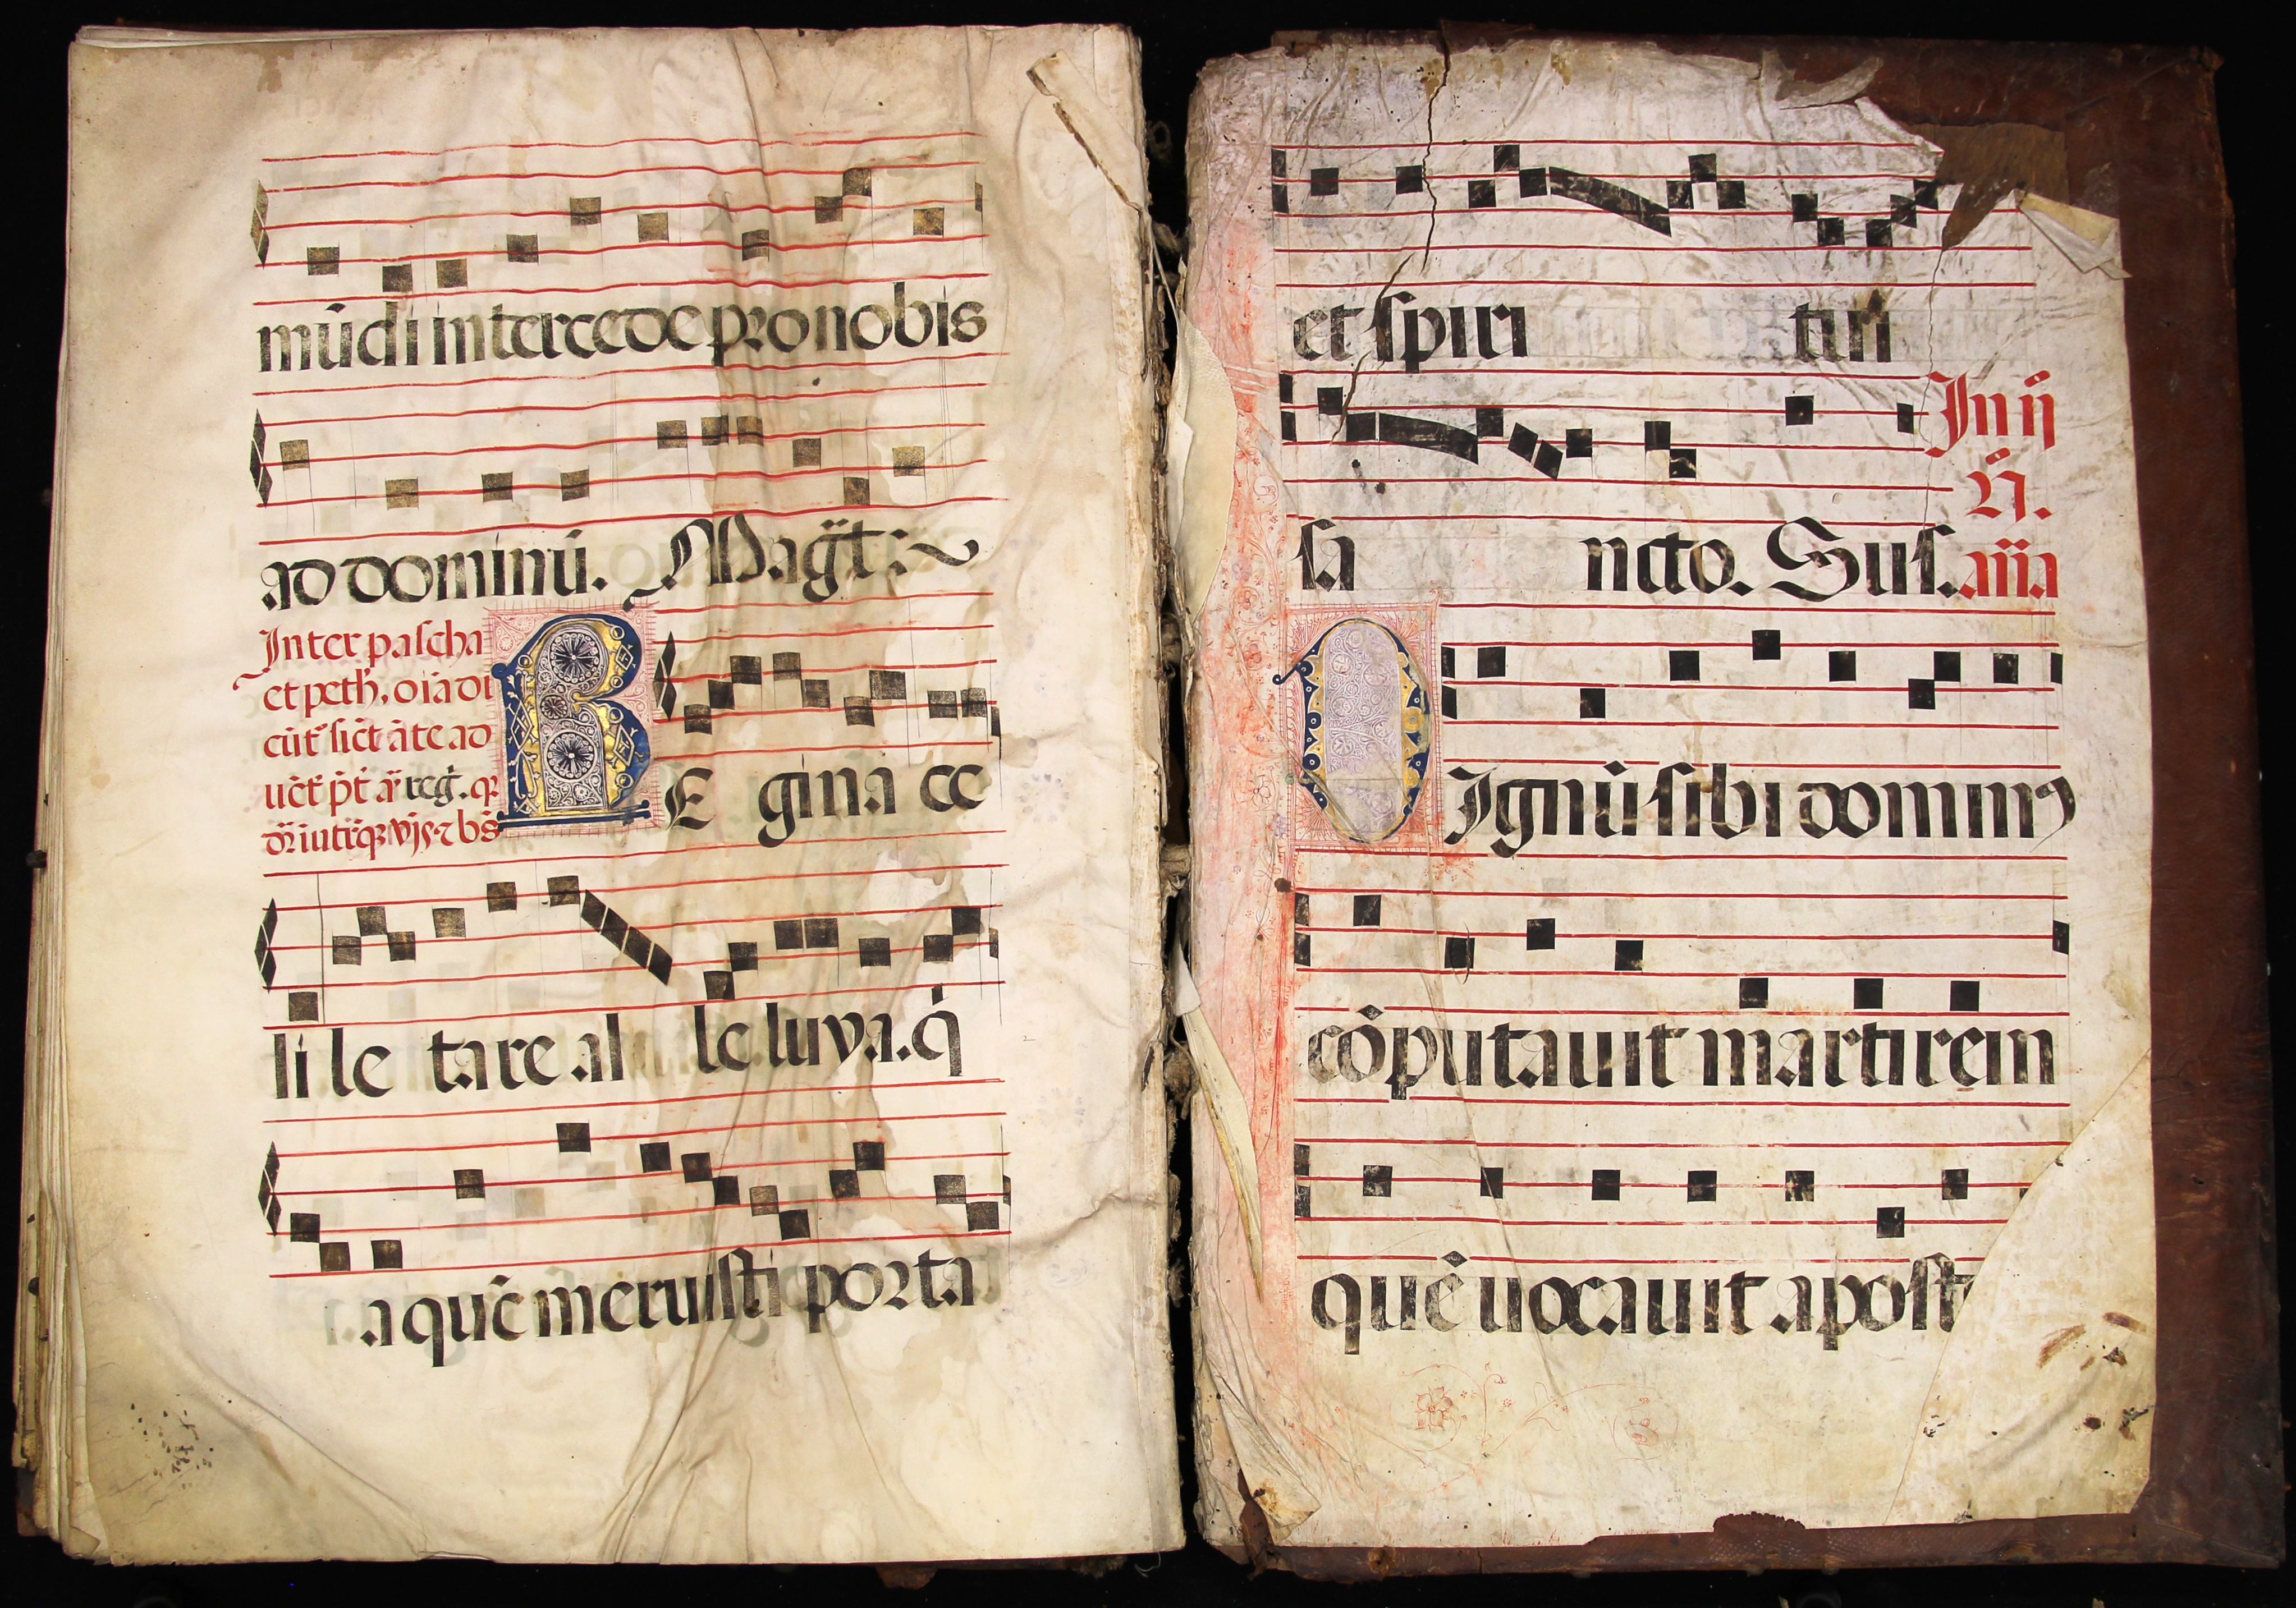 mūdi intercede pro nobis
ad dominū. Magt̄:~
Inter pascha
et peth, oīa di
cūt sict āte ad
REgina ce
li le tare al le luya. q̄
a quē meruisti porta
et spiri tui
sancto. Sus. āīa
In ij
Dignū sibi dominꝰ
cōputauit martirem
quē uocauit apost